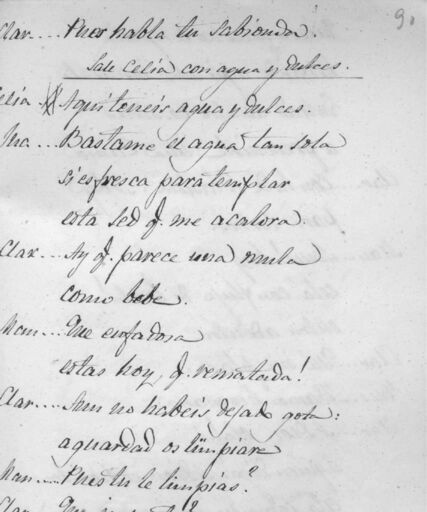 9.
Clar.... Pues habla tu sabionda.
Sale Celia con agua y dulces.
Celia Aqui teneis agua y dulces.
Bastame el agua tan sola
si es fresca para templar
esta sed q. me acalora.
Clar... Ay q. parece una mula
como bebe.
Man... Que enfadosa
estas hoy, q. rematada!
Clar.... Aun no habeis dejado gota:
aguardad os limpiare
Man.... Pues tu le limpias?
Clar...